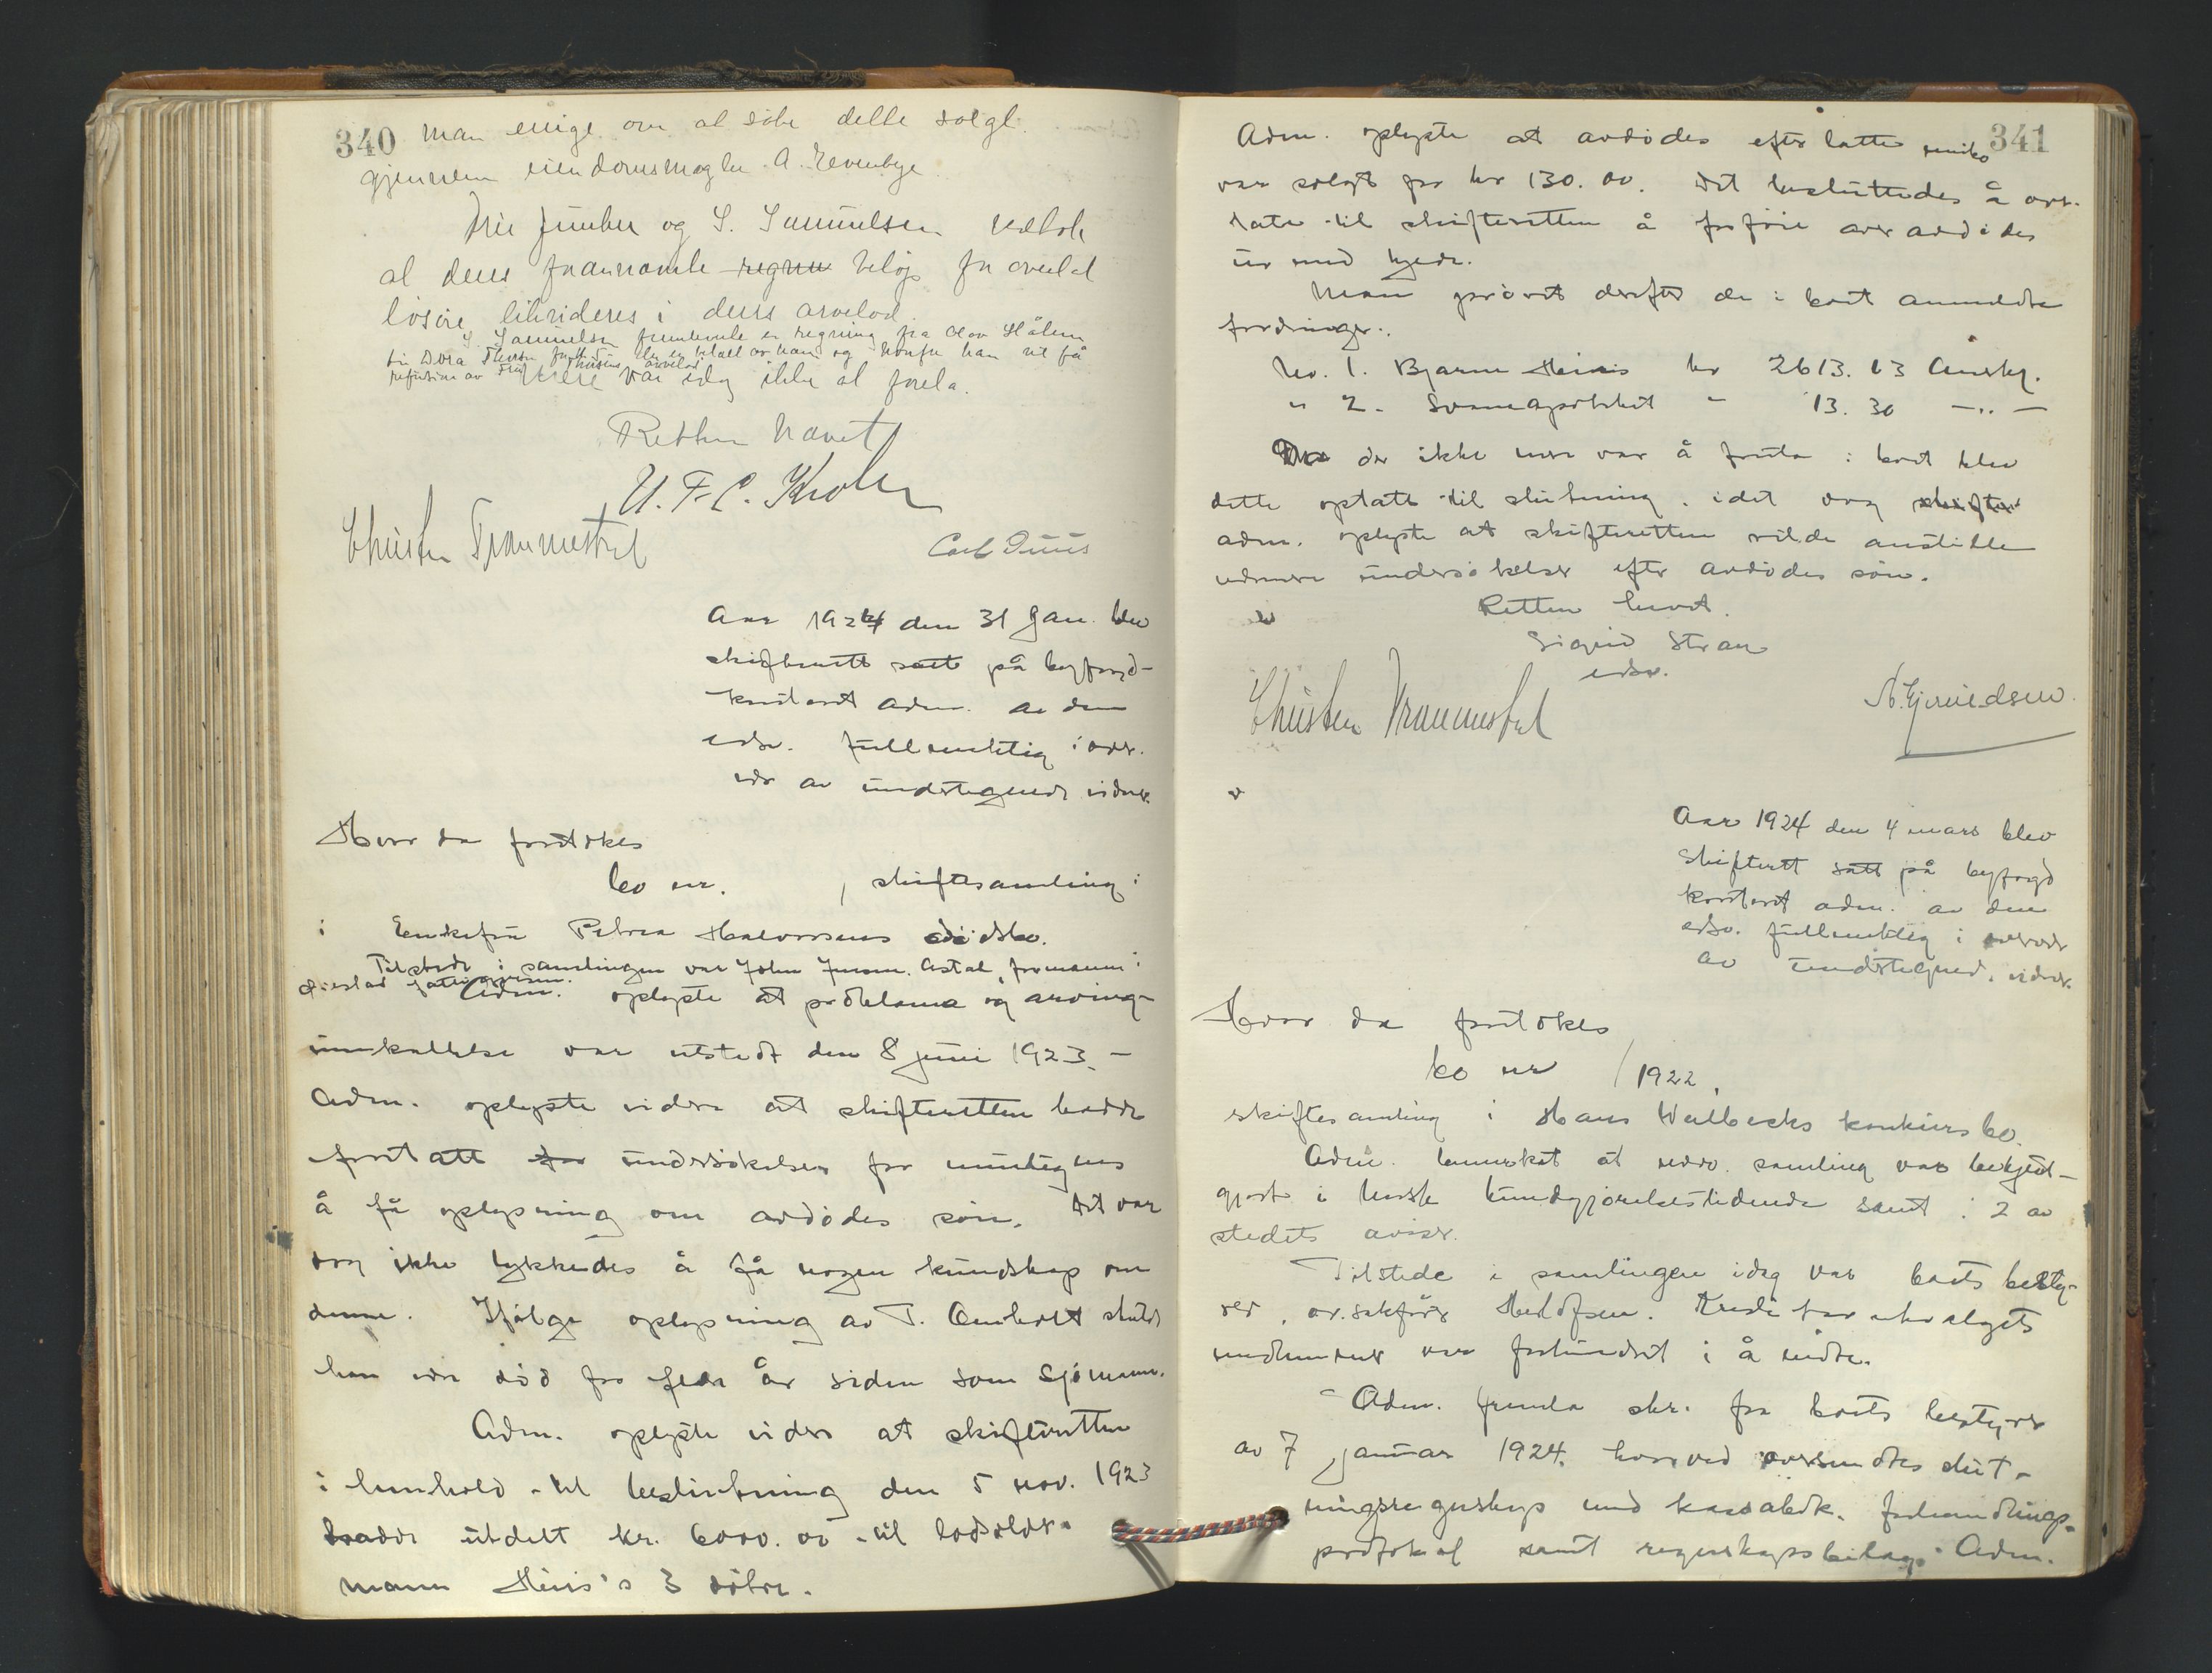 340 man enige om at søke dette solgt
gjennem eiendomsmægler A. Evenbye
Frue Juuher og S. Samuelsen vedtok
at deres paanævnte regnin beløp for overtat
løsøre likvideres i deres arvelod.
S. Samuelsen fremlevte en regning fra Olav Hålien
til Dora Thusen er betalt av ham og hvorfor han vil få
refusion av Fru Thusens arvelod
Mere var idag ikke at forela.
Retten hævet
U. F. C. Krohn
Christen Trommestad
Carl Duus
Aar 1924 den 31 Jan. blev
skifterett satt på byfogd-
kontoret adm. av den
edsv. fullmektig i over-
vær av undertegnede vidner.
Hvor da foretokes
bo nr. / skiftesamling i
i Enkefru Petrea Halvorsens dødsbo.
Tilstede i samlingen var John Jensen Astal, formann i
Øiestad fattigvesen.
Adm. oplyste at proklama og arving-
innkallelse var utstedt den 8 juni 1923.-
Adm. oplyste videre at skifteretten hadde
foretatt for undersøkelser for muligens
å få oplysning om avdødes søn. Det var
dog ikke lykkedes å få nogen kundskap om
denne. Ifølge oplysning av T. Omholt skulde
han være død for flere år siden som sjømann.
Adm. oplyste videre at skifteretten
i henhold til beslutning den 5 nov. 1923
hadde utdelt kr. 6000.00 til lodsolder-
mann Heris's 3 døtre.
341
Adm. oplyste at avdødes efterlatte
var solgt for kr 130.00. Det besluttedes å over-
late til skifteretten å forføie over avdødes
ur med kjede.
Man prøvet derefter de i boet anmeldte
fordringer.
No. 1. Bjarne Heiris kr 2613.13 Anerkj.
" 2. Svaneapoteket " 13.30 -"-
Da der ikke mere var å foreta i boet blev
dette optatt til slutning. idet dog skifter
adm. oplyste at skifteretten vilde anstille
nærmere undersøkelser efter avdødes søn.
Retten hevet.
Sigrid Stray
edsv.
Christen Trommestad
N. Gjerudsen
Aar 1924 den 4 mars blev
skifterett satt på byfogd
kontoret adm. av den
edsv. fullmektig i overvær
av undertegned. vidner.
Hvor da foretokes
bo nr / 1922.
skiftesamling i Hans Wellbecks konkursbo.
Adm. bemerket at nærv. samling var bekjent-
gjort i Norsk kundgjørelsestidende samt i 2 av
stedets aviser.
Tilstede i samlingen idag var boets besty-
rer, or.sakfører Herlofsen. Kreditorutvalgets
medlemmer var forhindret i å møte.
Adm. fremla skr. fra boets bestyrer
av 7 januar 1924. hvorved oversendtes slut-
ningsregnskap med kassabok. forhandlings-
protokol samt regnskapsbilag. Adm.